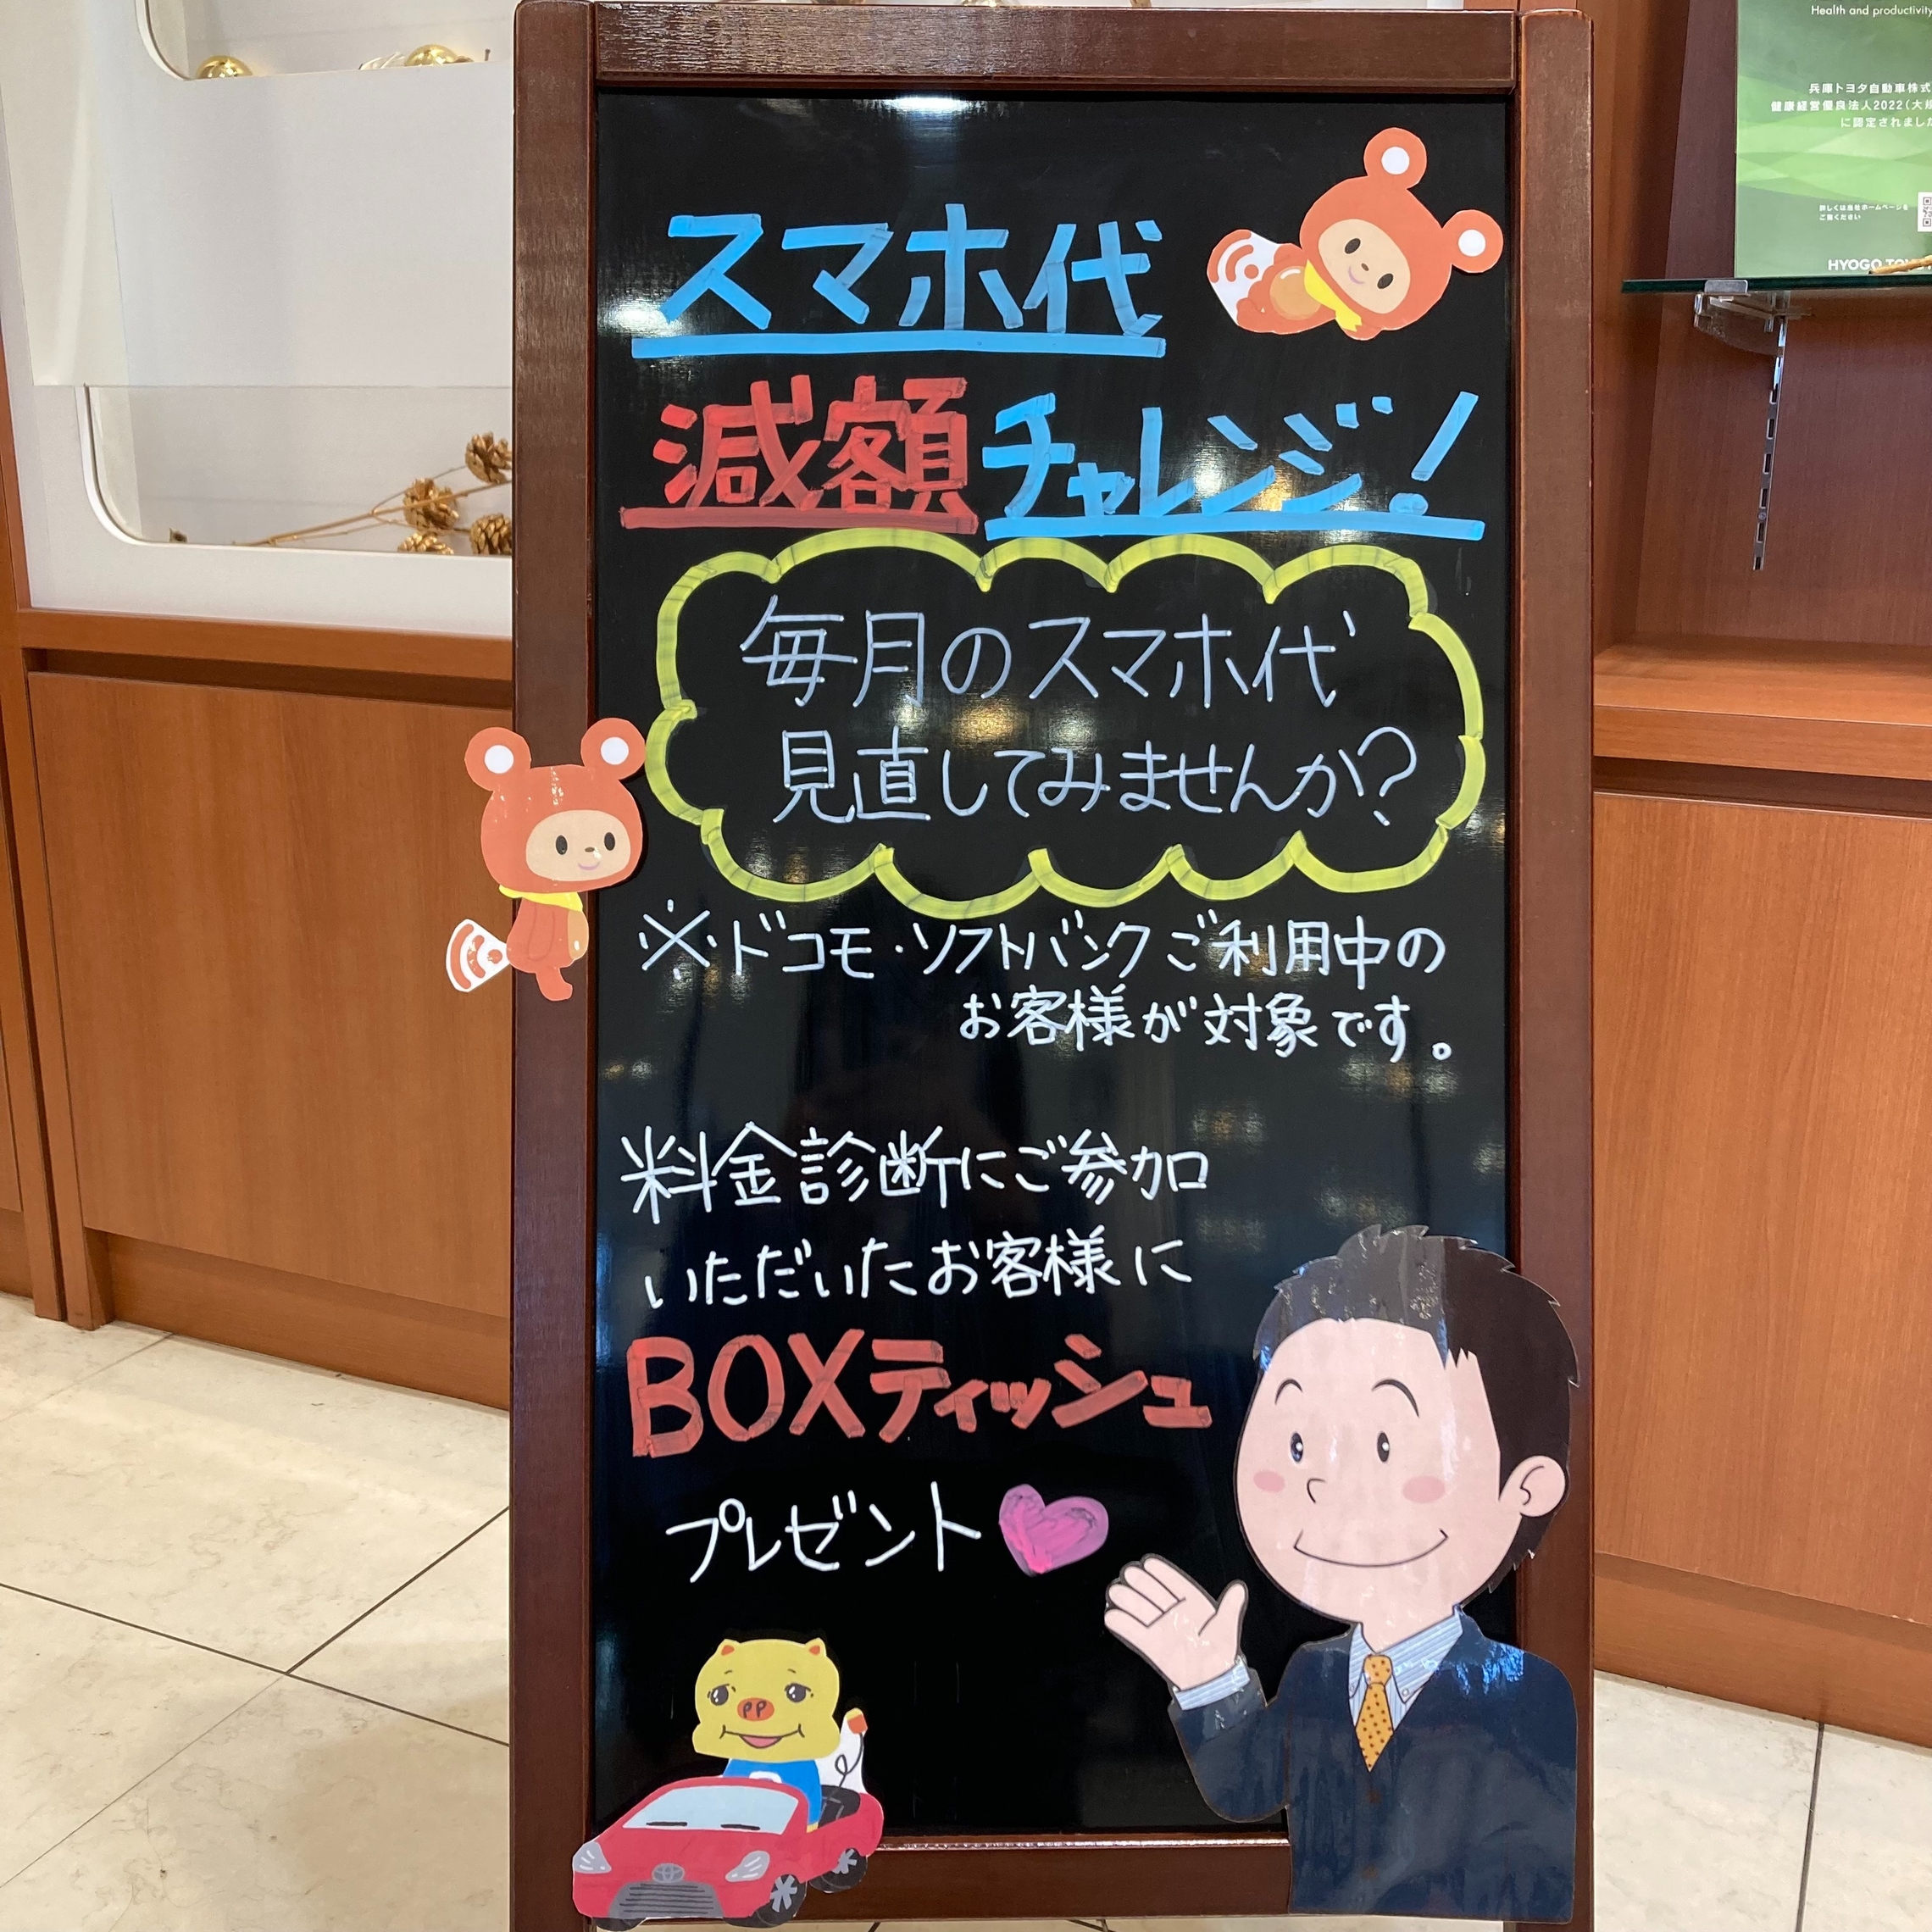 スマホ代
減額チャレンジ!
毎月のスマホ代
見直してみませんか?
※ドコモ・ソフトバンクご利用中の
お客様が対象です。
料金診断にご参加
いただいたお客様に
BOXティッシュ
プレゼント
PP
Health and productivity
兵庫トヨタ自動車株式
健康経営優良法人2022(大規
に認定されました
詳しくは当社ホームページを
ご覧ください
HYOGO TOY